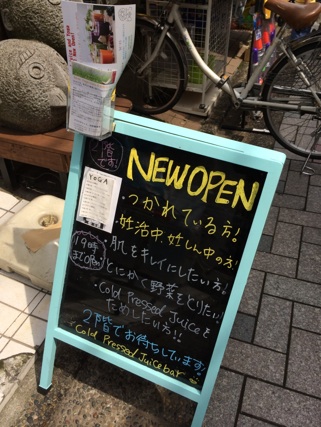 2階です!
NEW OPEN
YOGA
・つかれている方!
・妊活中、妊しん中の方!
19時までOPEN
・肌をキレイにしたい方!
・とにかく野菜をとりたい!
・Cold Pressed Juiceを
ためしたい方!!
2階でお待ちしています!
Cold Pressed Juice bar